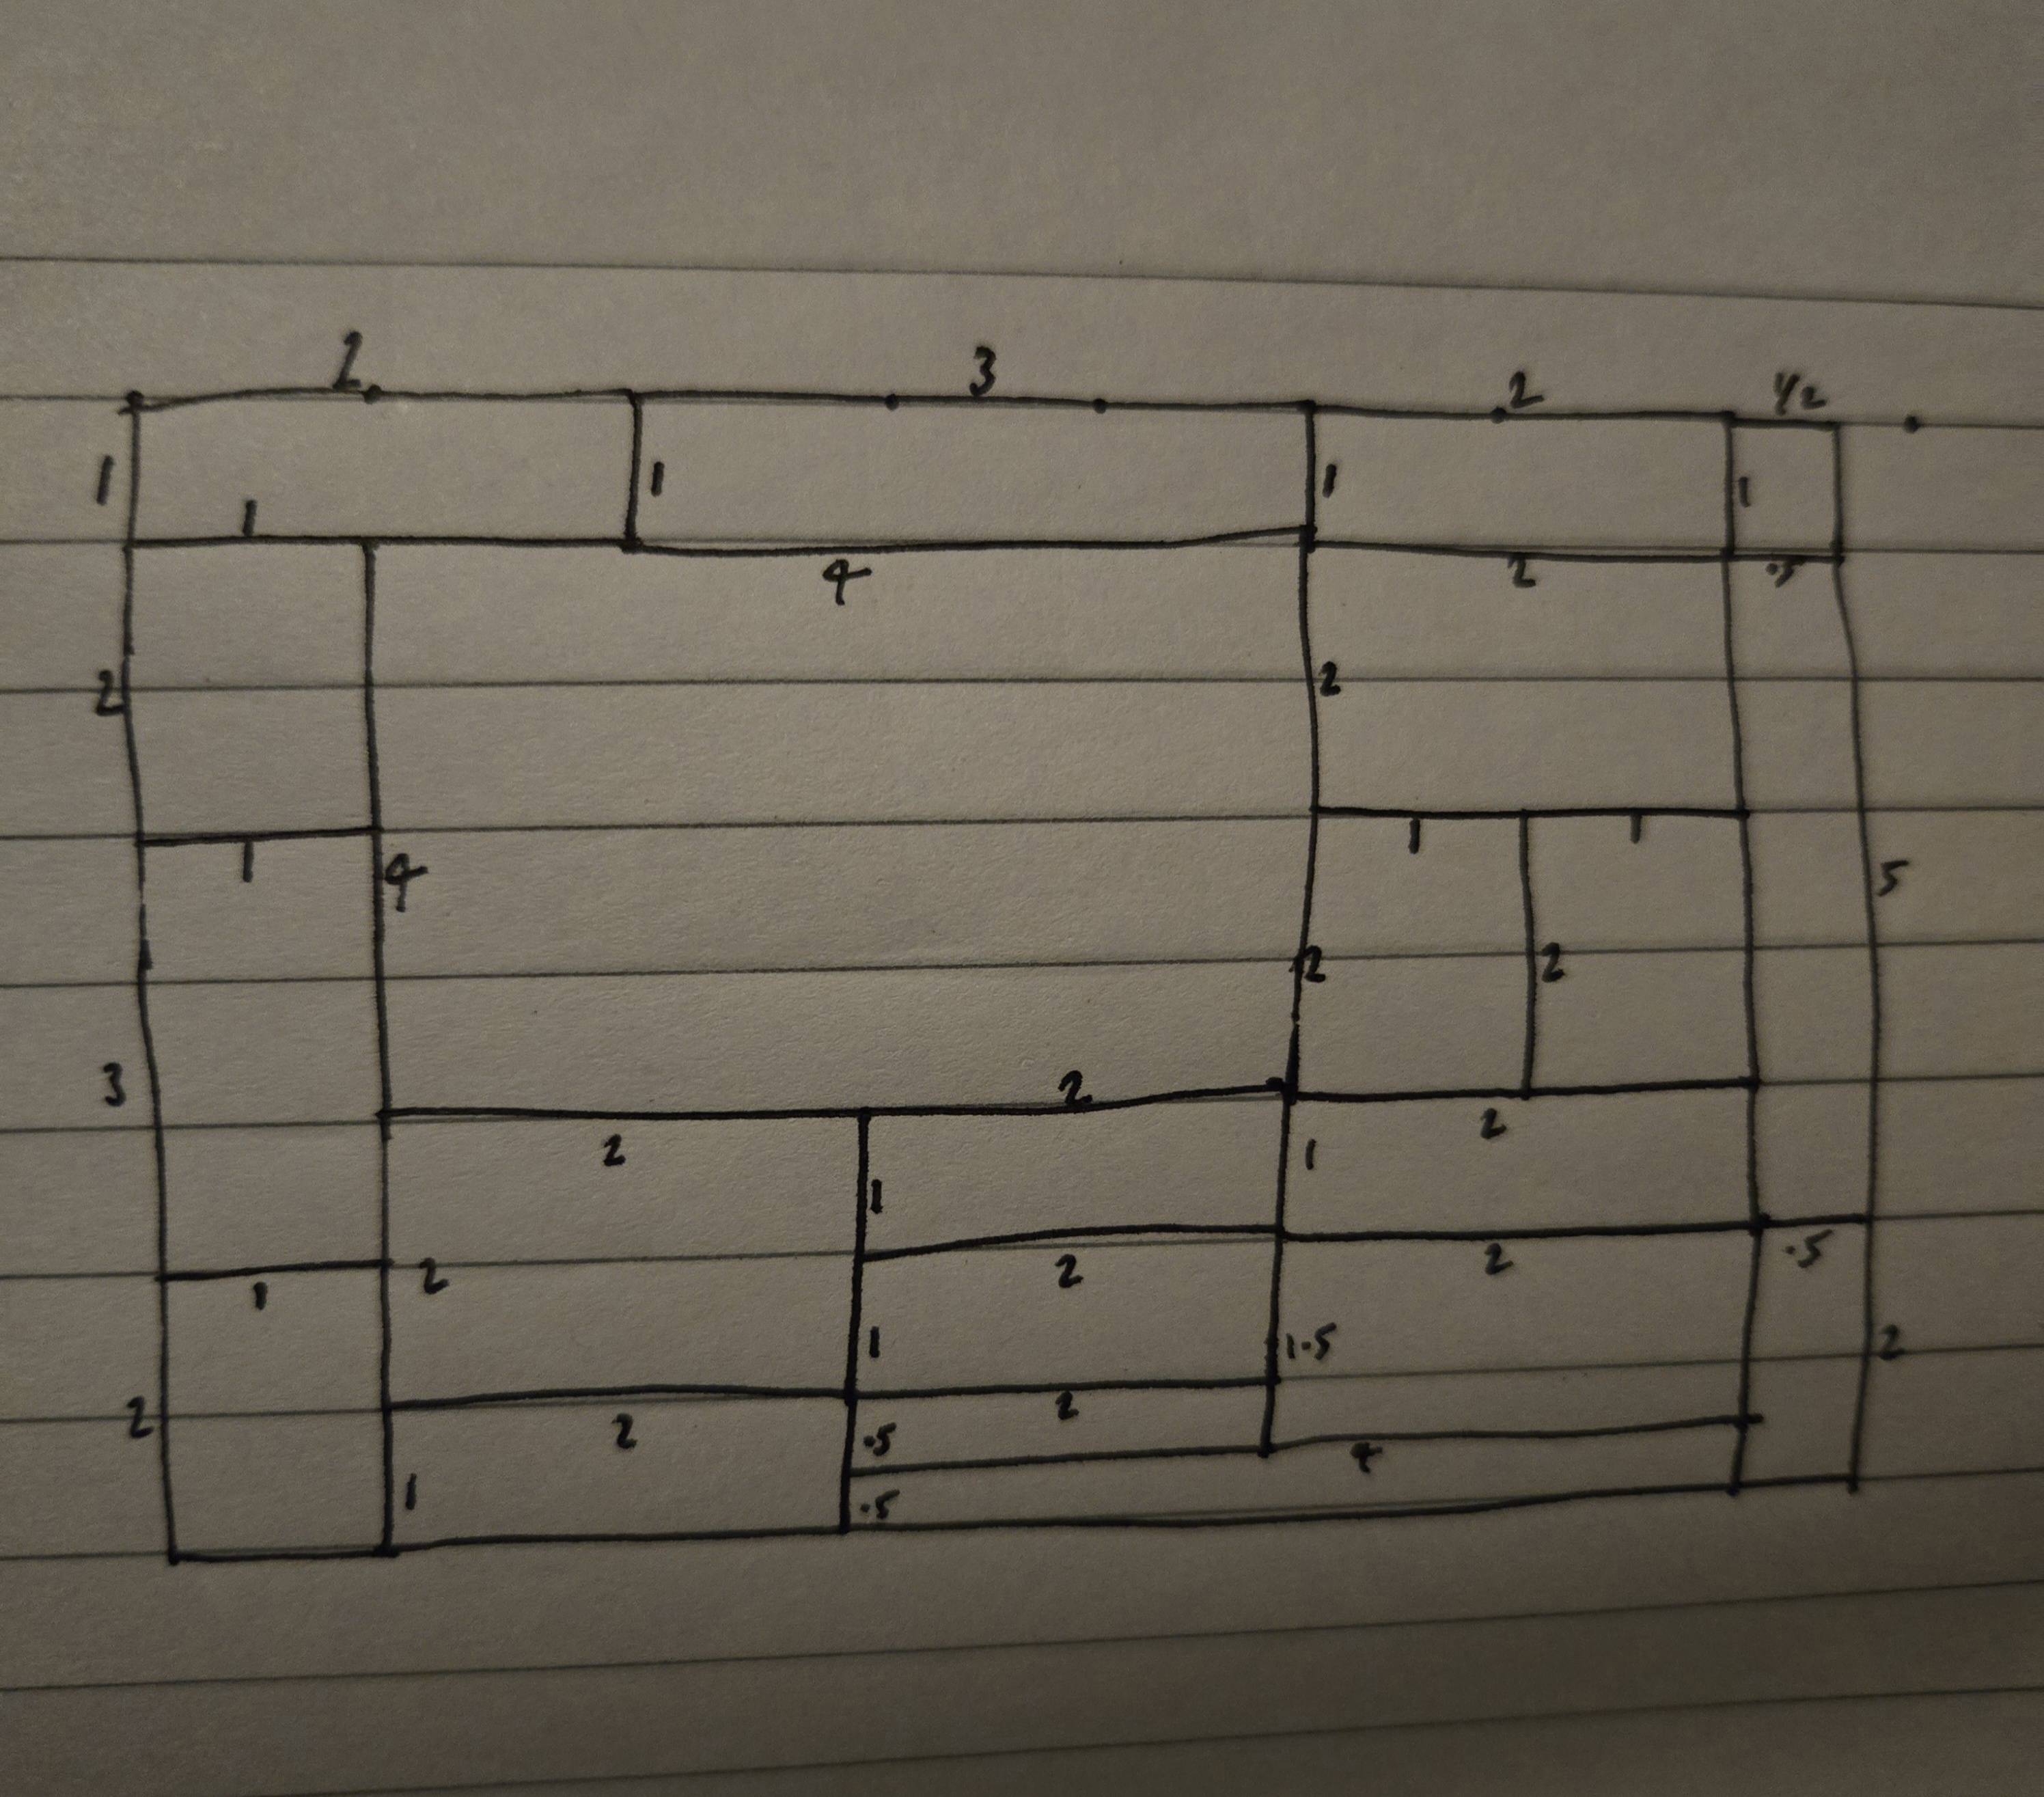 2 3 2 1/2
1 1 1 1
1
4 2 .5
2 2
1 1
1 4 5
2 2
3 2
2 2
1
1
2 .5
1 2 2
1 1.5 2
2 2
2 .5 4
1 .5